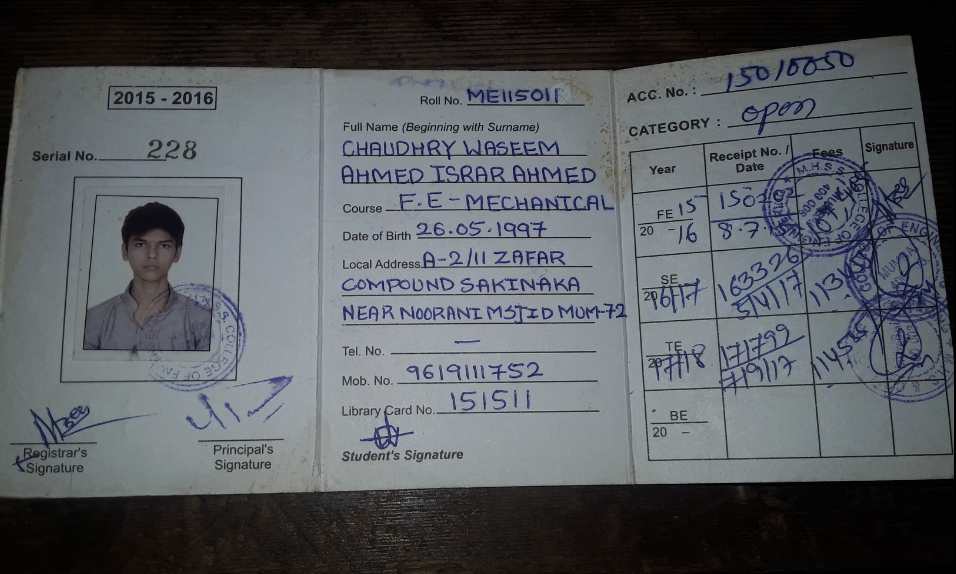 2015 - 2016
Serial No. 228
Registrar's
Signature
Principal's
Signature
Roll No. ME115011
Full Name (Beginning with Surname)
CHAUDHRY WASEEM
AHMED ISRAR AHMED
Course F.E - MECHANICAL
Date of Birth 26.05.1997
Local Address A-2/11 ZAFAR
COMPOUND SAKINAKA
NEAR NOORANI MSJID MUM-72
Tel. No. —
Mob. No. 9619111752
Library Card No. 151511
Student's Signature
ACC. No. : 15010050
CATEGORY : open
Year Receipt No. / Date Fees Signature
FE 2015-16
SE 2016/17 163326 5/4/17
TE 2017/18 171792
BE 20 -